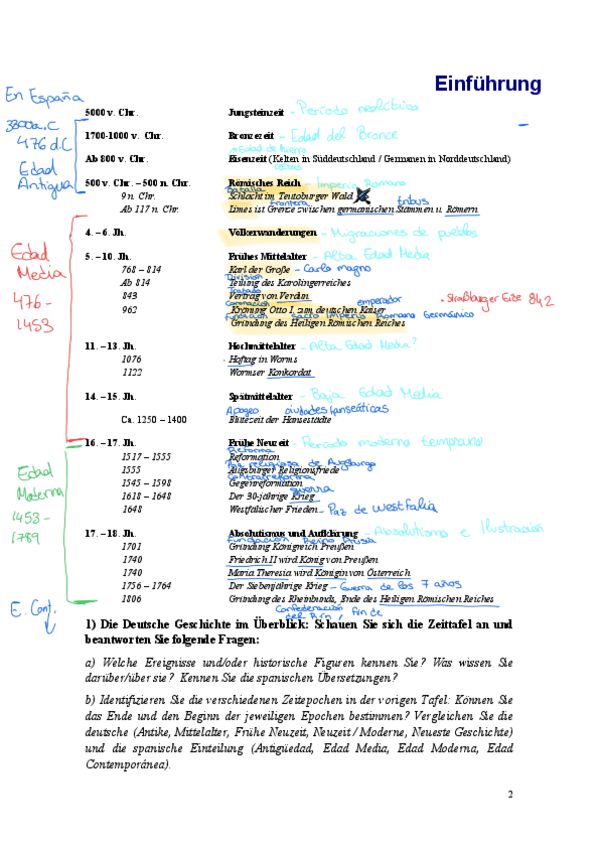 Einführung
En España
3800a.C
476 d.C
Edad
Antigua
5000 v. Chr. Jungsteinzeit - Período neolítico
1700-1000 v. Chr. Bronzezeit - Edad del Bronce
Edad de hierro
Ab 800 v. Chr. Eisenzeit (Kelten in Süddeutschland / Germanen in Norddeutschland)
celtas
500 v. Chr. – 500 n. Chr. Römisches Reich - Imperio Romano
Batalla
9 n. Chr. Schlacht im Teutoburger Wald
frontera tribus
Ab 117 n. Chr. Limes ist Grenze zwischen germanischen Stämmen u. Römern
4. – 6. Jh. Völkerwanderungen - Migraciones de pueblos
Edad
Media
476 -
1453
5. – 10. Jh. Frühes Mittelalter - Alta Edad Media
768 – 814 Karl der Große - Carlo magno
División
Ab 814 Teilung des Karolingerreiches
Tratado
843 Vertrag von Verdun
Coronación emperador
962 Krönung Otto I. zum deutschen Kaiser
• Straßburger Eide 842
Fundación Sacro Imperio Romano Germánico
Gründung des Heiligen Römischen Reiches
11. – 13. Jh. Hochmittelalter - Alta Edad Media?
1076 Hoftag in Worms
1122 Wormser Konkordat
14. – 15. Jh. Spätmittelalter - Baja Edad Media
Apogeo ciudades hanseáticas
Ca. 1250 – 1400 Blütezeit der Hansestädte
16. – 17. Jh. Frühe Neuzeit - Período moderno temprano
Reforma
1517 – 1555 Reformation
Paz religiosa de Augsburgo
1555 Augsburger Religionsfriede
Contrarreforma
1545 – 1598 Gegenreformation
guerra
1618 – 1648 Der 30-jährige Krieg
1648 Westfälischer Frieden - Paz de Westfalia
Edad
Moterna
1453 -
1789
17. – 18. Jh. Absolutismus und Aufklärung - Absolutismo e Ilustración
Fundación Reino Prusia
1701 Gründung Königreich Preußen
1740 Friedrich II wird König von Preußen
1740 Maria Theresia wird Königin von Österreich
1756 – 1764 Der Siebenjährige Krieg - Guerra de los 7 años
1806 Gründung des Rheinbunds, Ende des Heiligen Römischen Reiches
Confederación
del Rin, Fin de
E. Cont.
1) Die Deutsche Geschichte im Überblick: Schauen Sie sich die Zeittafel an und
beantworten Sie folgende Fragen:
a) Welche Ereignisse und/oder historische Figuren kennen Sie? Was wissen Sie
darüber/über sie? Kennen Sie die spanischen Übersetzungen?
b) Identifizieren Sie die verschiedenen Zeitepochen in der vorigen Tafel: Können Sie
das Ende und den Beginn der jeweiligen Epochen bestimmen? Vergleichen Sie die
deutsche (Antike, Mittelalter, Frühe Neuzeit, Neuzeit / Moderne, Neueste Geschichte)
und die spanische Einteilung (Antigüedad, Edad Media, Edad Moderna, Edad
Contemporánea).
2